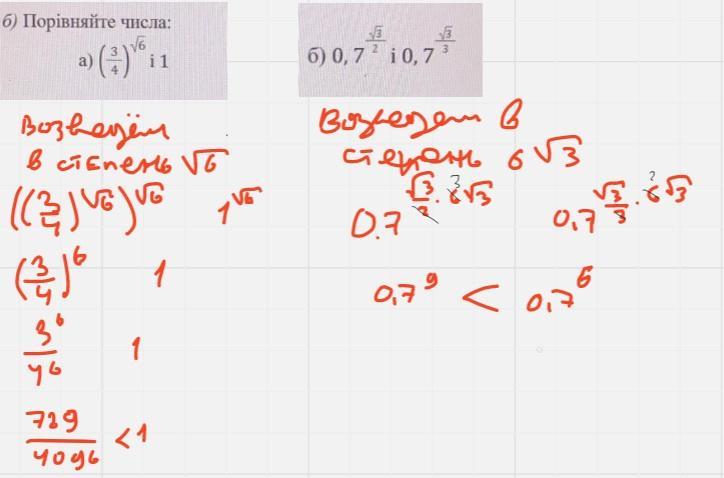 б) Порівняйте числа:
а) (3/4)^√6 і 1
б) 0,7^(√3/2) і 0,7^(√3/3)
Возведём
в степень √6
((3/4)^√6)^√6 1^√6
(3/4)^6 1
3^6/4^6 1
729/4096 < 1
Возведем в
степень 6√3
0.7^(√3/2 · 6√3) 0,7^(√3/3 · 6√3)
0,7^9 < 0,7^6